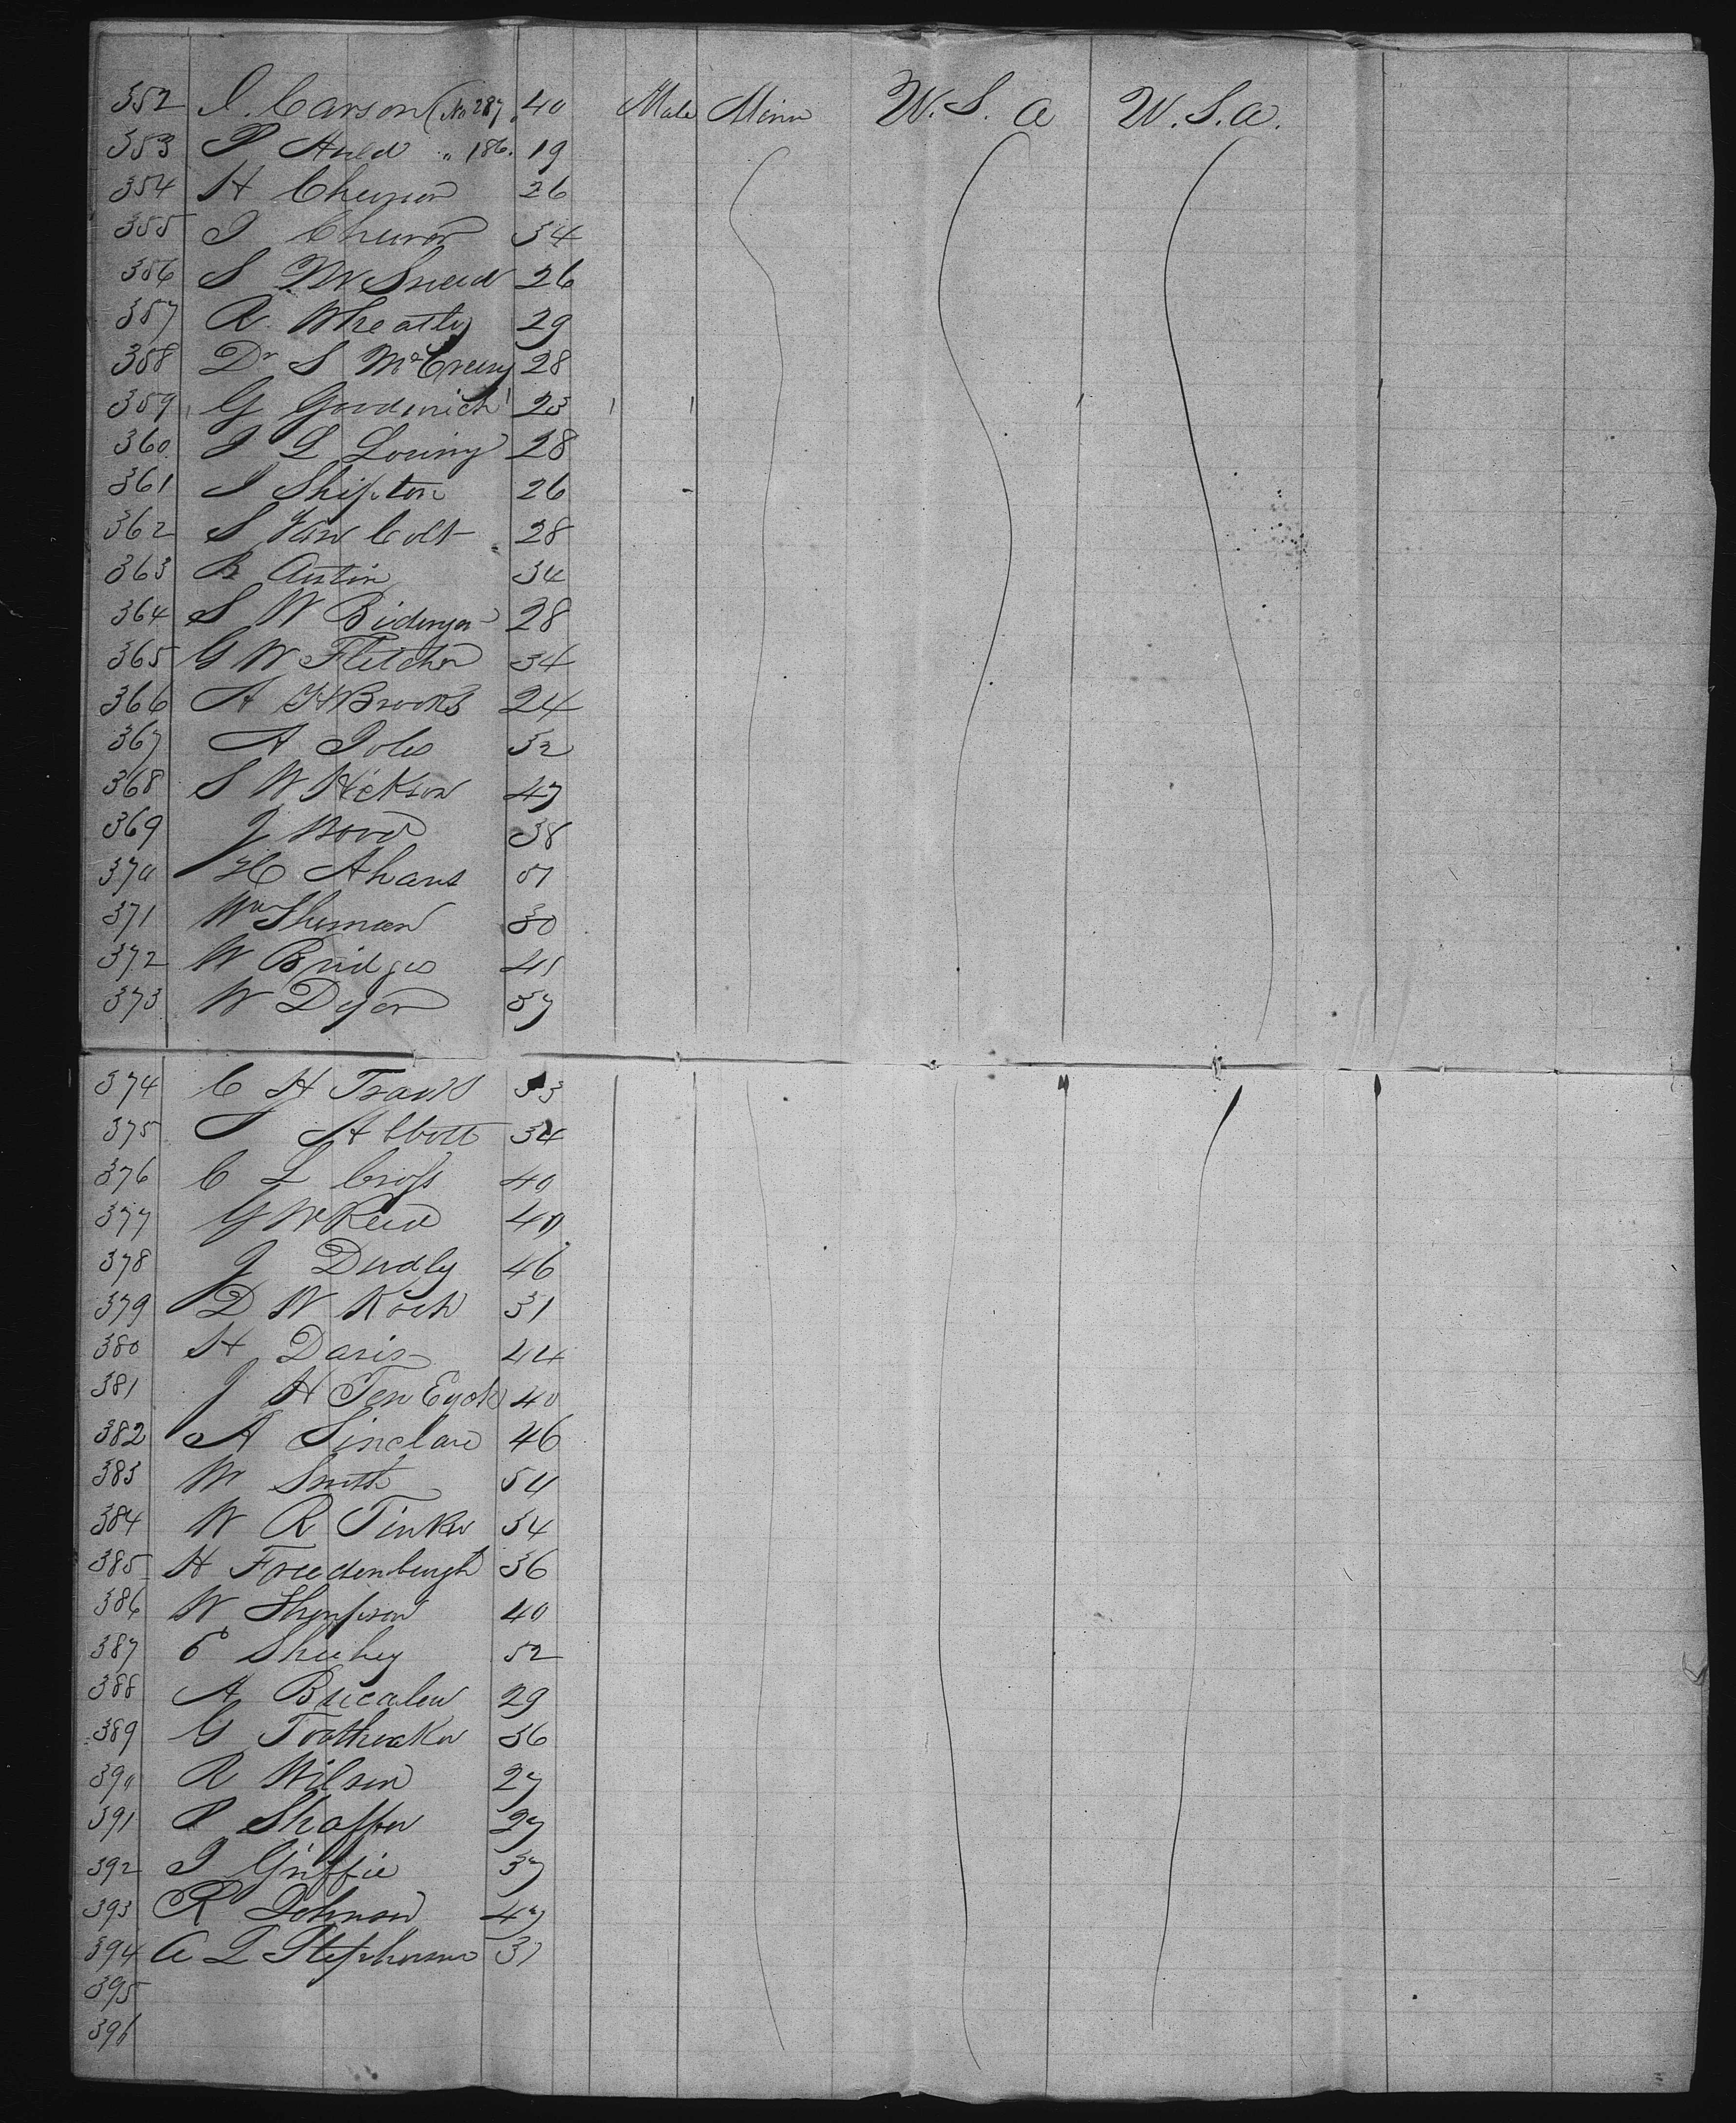 352 J. Carson (No 287. 40 Male Minr U.S.a U.S.a.
353 P Auld " 186. 19
354 H Chevron 26
355 J 34
356 S M Sneed 26
357 R. Wheatly 29
358 Dr S McCreery 28
359 G Goodinich 23
360 J L Loring 28
361 J Shipton 26
362 S Van Colt 28
363 B Austin 34
364 S W 28
365 G W Fletcher 34
366 A H Brooks 24
367 A Joles 32
368 S W Hickson 47
369 J Wood 38
370 H Ahans 51
371 Wm Shuman 30
372 W Bridges 45
373 W Dyer 37
374 C H Travis 33
375 J Abbott 34
376 C L Cross 40
377 G W Reid 40
378 J Dudly 46
379 D W Koch 31
380 H Davis 44
381 J H Ten Eyck 40
382 A Sinclare 46
383 W Smith 54
384 W R Tinker 34
385 H Freedenburgh 36
386 W Thompson 40
387 E Sheehey 52
388 A Bricalew 29
389 G Toothaker 36
390 R Wilson 27
391 P Shaffer 27
392 J Griffie 37
393 R Johnson 47
394 A L Stephenson 31
395
396